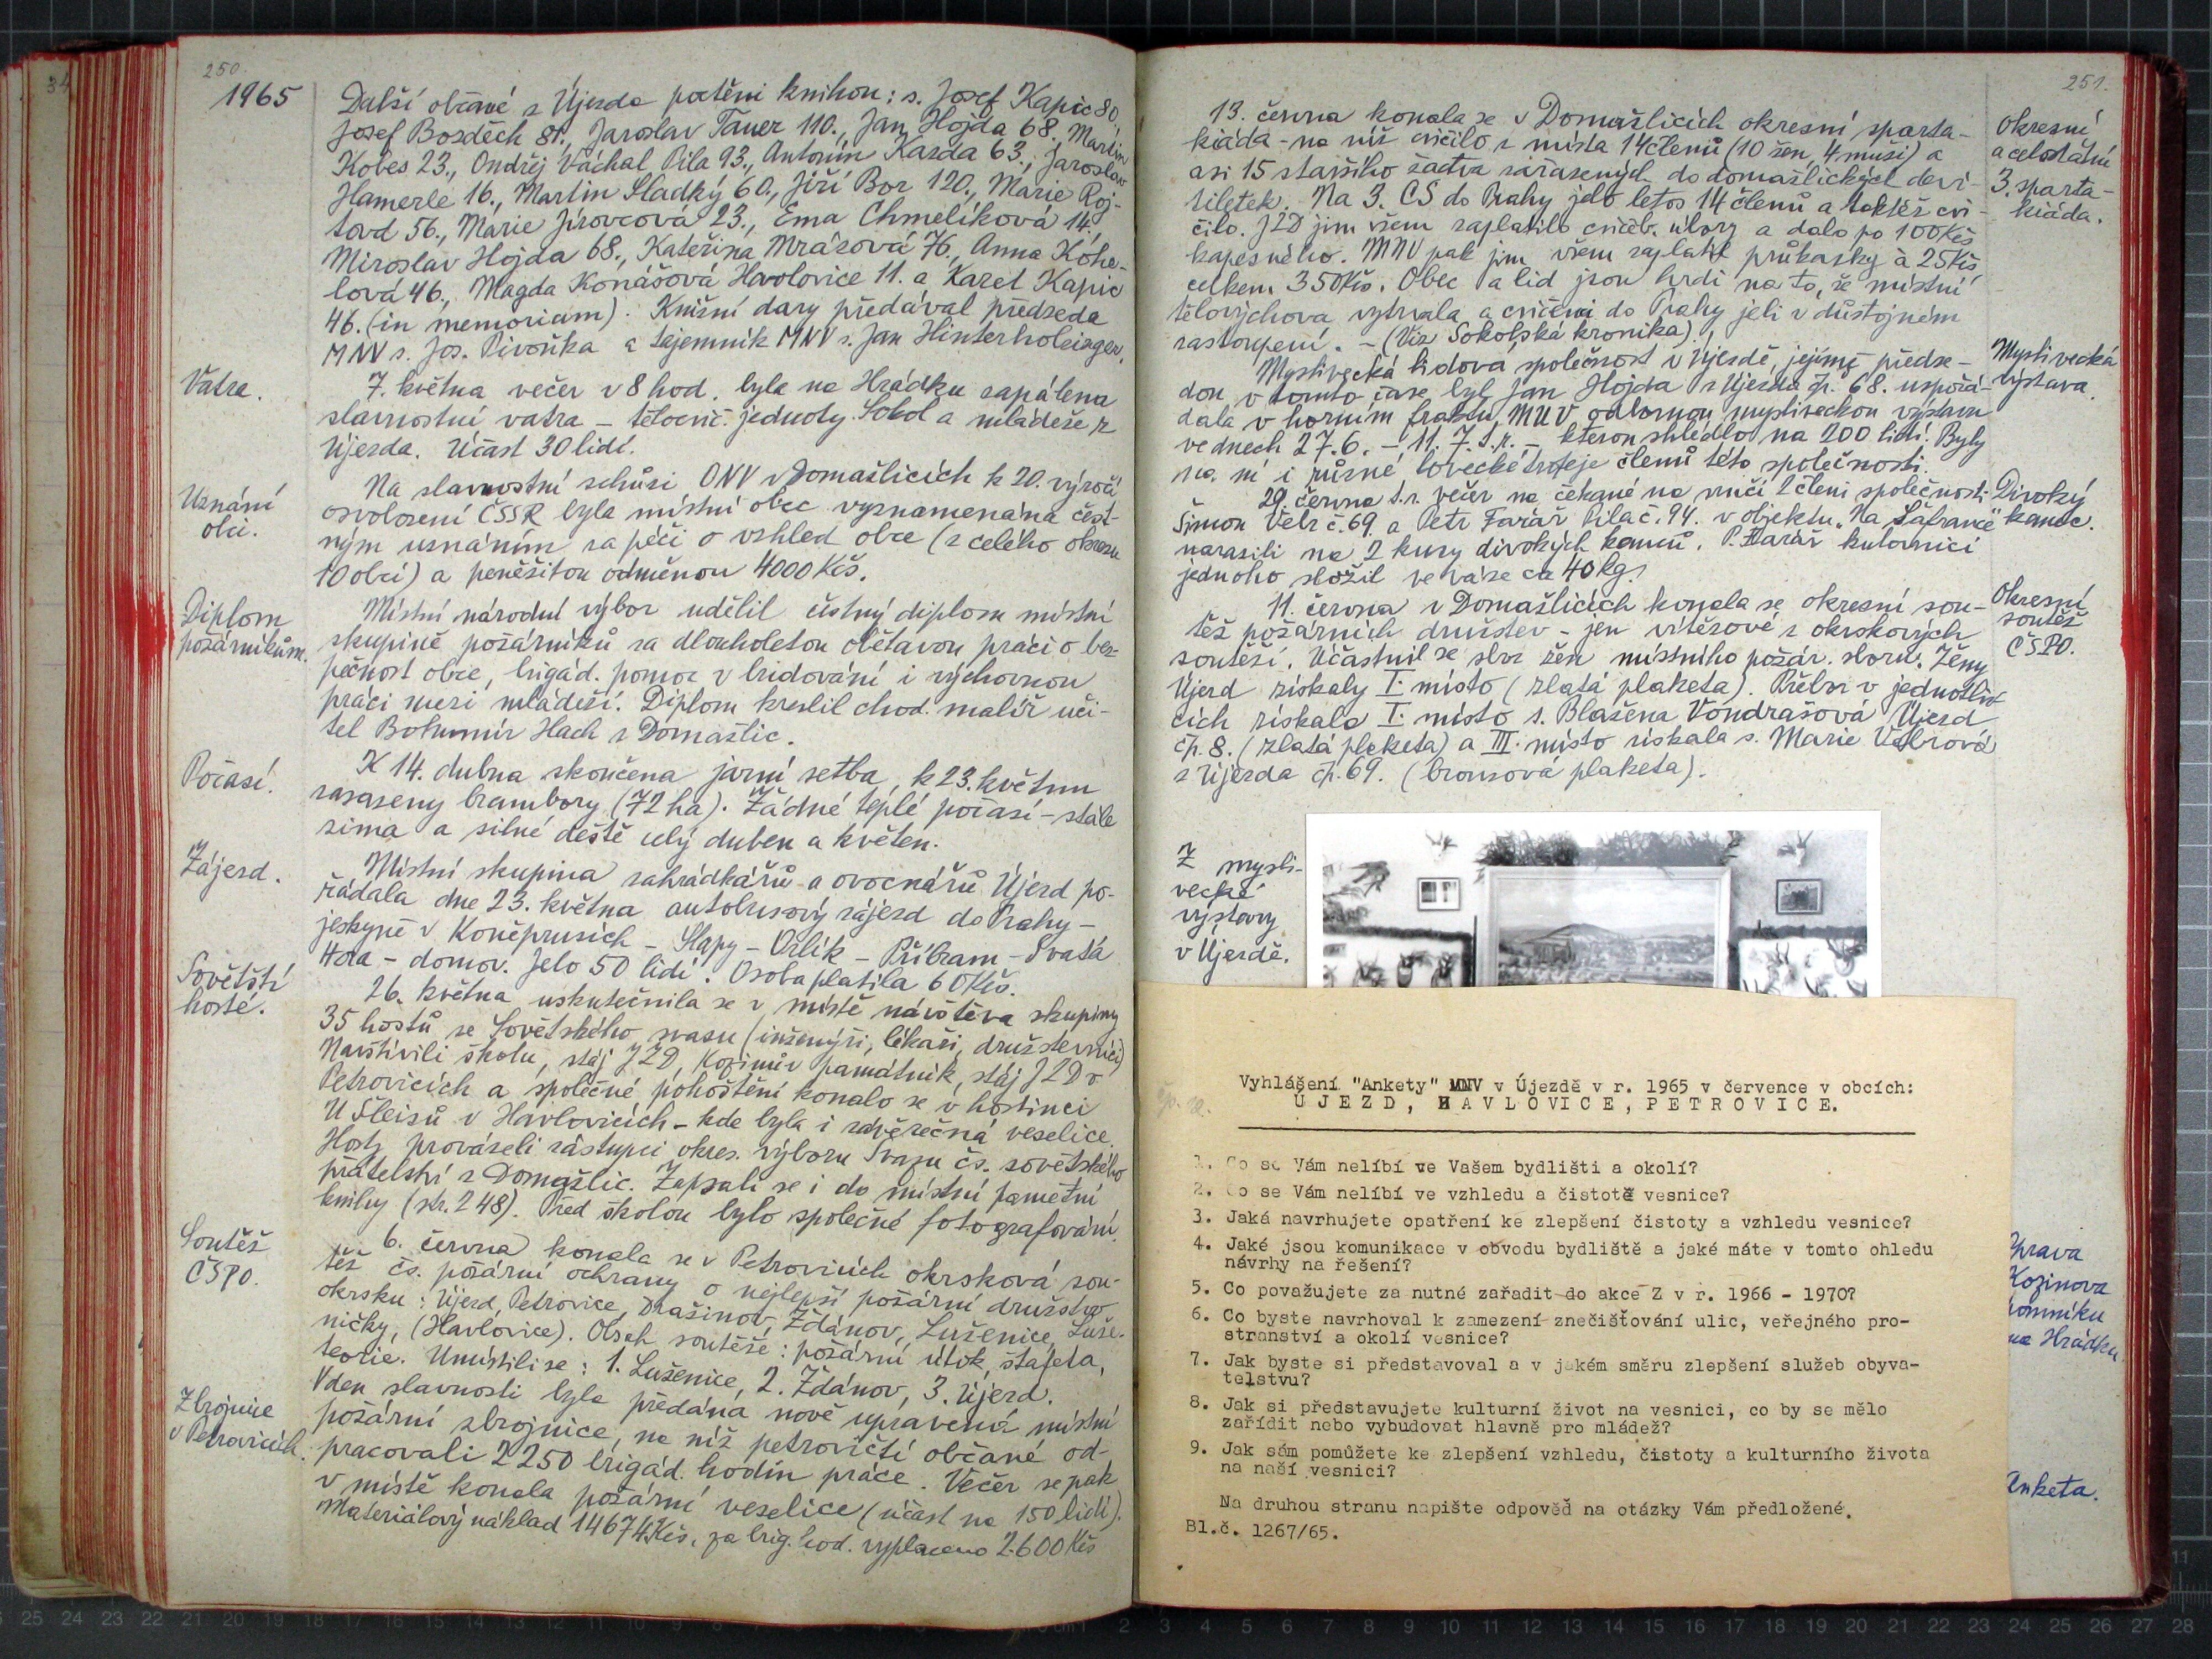 250.
1965
Další občané z Újezda poctěni knihou: s. Josef Kapic 80.,
Josef Bozděch 81., Jaroslav Tauer 110., Jan Hojda 68, Martin
Kobes 23., Ondřej Váchal Pila 93., Antonín Kazda 63., Jaroslav
Hamerle 16., Martin Sladký 60., Jiří Bor 120., Marie Roj-
tová 56., Marie Jírovcová 23., Ema Chmelíková 14.,
Miroslav Hojda 68., Kateřina Mrázová 76., Anna Kohe-
lová 46., Magda Konášová Havlovice 11. a Karel Kapic
46. (in memoriam). Knižní dary předával předseda
MNV s. Jos. Pivoňka a tajemník MNV s. Jan Hinterholzinger.
Vatra.
7. května večer v 8 hod. byla na Hrádku zapálena
slavnostní vatra – tělocvič. jednoty Sokol a mládeže z
Újezda. Účast 30 lidí.
Uznání
obci.
Na slavnostní schůzi ONV v Domažlicích k 20. výročí
osvobození ČSSR byla místní obec vyznamenána čest-
ným uznáním za péči o vzhled obce (z celého okresu
10 obcí) a peněžitou odměnou 4000 Kčs.
Diplom
požárníkům.
Místní národní výbor udělil čestný diplom místní
skupině požárníků za dlouholetou obětavou práci o bez-
pečnost obce, brigád. pomoc v budování i výchovnou
práci mezi mládeží. Diplom kreslil chod. malíř uči-
tel Bohumír Hach z Domažlic.
Počasí.
K 14. dubna skončena jarní setba, k 23. květnu
zasazeny brambory (72 ha). Žádné teplé počasí – stále
zima a silné deště celý duben a květen.
Zájezd.
Místní skupina zahrádkářů a ovocnářů Újezd po-
řádala dne 23. května autobusový zájezd do Prahy –
jeskyně v Koněprusích – Slapy – Orlík – Příbram – Svatá
Hora – domov. Jelo 50 lidí. Osoba platila 60 Kčs.
Sovětští
hosté.
26. května uskutečnila se v místě návštěva skupiny
35 hostů ze Sovětského svazu (inženýři, lékaři, družstevníci)
Navštívili školu, stáj JZD, Kozinův památník, stáj JZD v
Petrovicích a společné pohoštění konalo se v hostinci
U Fleisů v Havlovicích – kde byla i závěrečná veselice.
Hosty provázeli zástupci okres. výboru Svazu čs. sovětského
přátelství z Domažlic. Zapsali se i do místní pamětní
knihy (str. 248). Před školou bylo společné fotografování.
Soutěž
ČSPO.
6. června konala se v Petrovicích okrsková sou-
těž čs. požární ochrany o nejlepší požární družstvo
okrsku: Újezd, Petrovice, Draženov, Ždánov, Luženice, Luže-
ničky, (Havlovice). Obsah soutěže: požární útok, štafeta,
teorie. Umístili se: 1. Luženice, 2. Ždánov, 3. Újezd.
Zbrojnice
v Petrovicích.
V den slavnosti byla předána nově upravená místní
požární zbrojnice, na níž petrovičtí občané od-
pracovali 2250 brigád. hodin práce. Večer se pak
v místě konala požární veselice (účast na 150 lidí).
Materiálový náklad 14674 Kčs, za brig. hod. vyplaceno 2.600 Kčs
251.
13. června konala se v Domažlicích okresní sparta-
kiáda – na níž cvičilo z místa 14 členů (10 žen, 4 muži) a
asi 15 staršího žactva zařazených do domažlických deví-
tiletek. Na 3. CS do Prahy jelo letos 14 členů a taktéž cvi-
čilo. JZD jim všem zaplatilo cvičeb. úbory a dalo po 100 Kčs
kapesného. MNV pak jim všem zaplatil průkazky à 25 Kčs,
celkem 350 Kčs. Obec a lid jsou hrdi na to, že místní
tělovýchova vytrvala a cvičenci do Prahy jeli v důstojném
zastoupení. – (Viz Sokolská kronika).
Okresní
a celostátní
3. sparta-
kiáda.
Myslivecká lidová společnost v Újezdě, jejímž předse-
dou v tomto čase byl Jan Hojda z Újezda čp. 68. uspořá-
dala v horním traktu MNV odbornou mysliveckou výstavu
ve dnech 27.6. – 11.7. t.r. – kterou shlédlo na 200 lidí. Byly
na ní i různé lovecké trofeje členů této společnosti.
Myslivecká
výstava.
29. června t.r. večer na čekané na vručí 2 členi společnosti
Šimon Velr č. 69 a Petr Farář Pila č. 94. v objektu „Na Šafrance“
narazili na 2 kusy divokých kanců. P. Farář kulovnicí
jednoho složil ve váze ca 40 kg.
Divoký
kanec.
11. června v Domažlicích konala se okresní sou-
těž požárních družstev – jen vítězové z okrskových
soutěží. Účastnil se sbor žen místního požár. sboru. Ženy
Újezd získaly I. místo (zlatá plaketa). Přebor v jednotliv-
cích získala I. místo s. Blažena Vondrašová Újezd
čp. 8. (zlatá plaketa) a III. místo získala s. Marie Velrová
z Újezda čp. 69. (bronzová plaketa).
Okresní
soutěž
ČSPO.
Z mysli-
vecké
výstavy
v Újezdě.
Vyhlášení "Ankety" MNV v Újezdě v r. 1965 v července v obcích:
ÚJEZD, HAVLOVICE, PETROVICE.
1. Co se Vám nelíbí ve Vašem bydlišti a okolí?
2. Co se Vám nelíbí ve vzhledu a čistotě vesnice?
3. Jaká navrhujete opatření ke zlepšení čistoty a vzhledu vesnice?
4. Jaké jsou komunikace v obvodu bydliště a jaké máte v tomto ohledu
návrhy na řešení?
5. Co považujete za nutné zařadit do akce Z v r. 1966 - 1970?
6. Co byste navrhoval k zamezení znečišťování ulic, veřejného pro-
stranství a okolí vesnice?
7. Jak byste si představoval a v jakém směru zlepšení služeb obyva-
telstvu?
8. Jak si představujete kulturní život na vesnici, co by se mělo
zařídit nebo vybudovat hlavně pro mládež?
9. Jak sám pomůžete ke zlepšení vzhledu, čistoty a kulturního života
na naší vesnici?
Na druhou stranu napište odpověď na otázky Vám předložené.
Bl.č. 1267/65.
Kozinova
na Hrádku
Anketa.